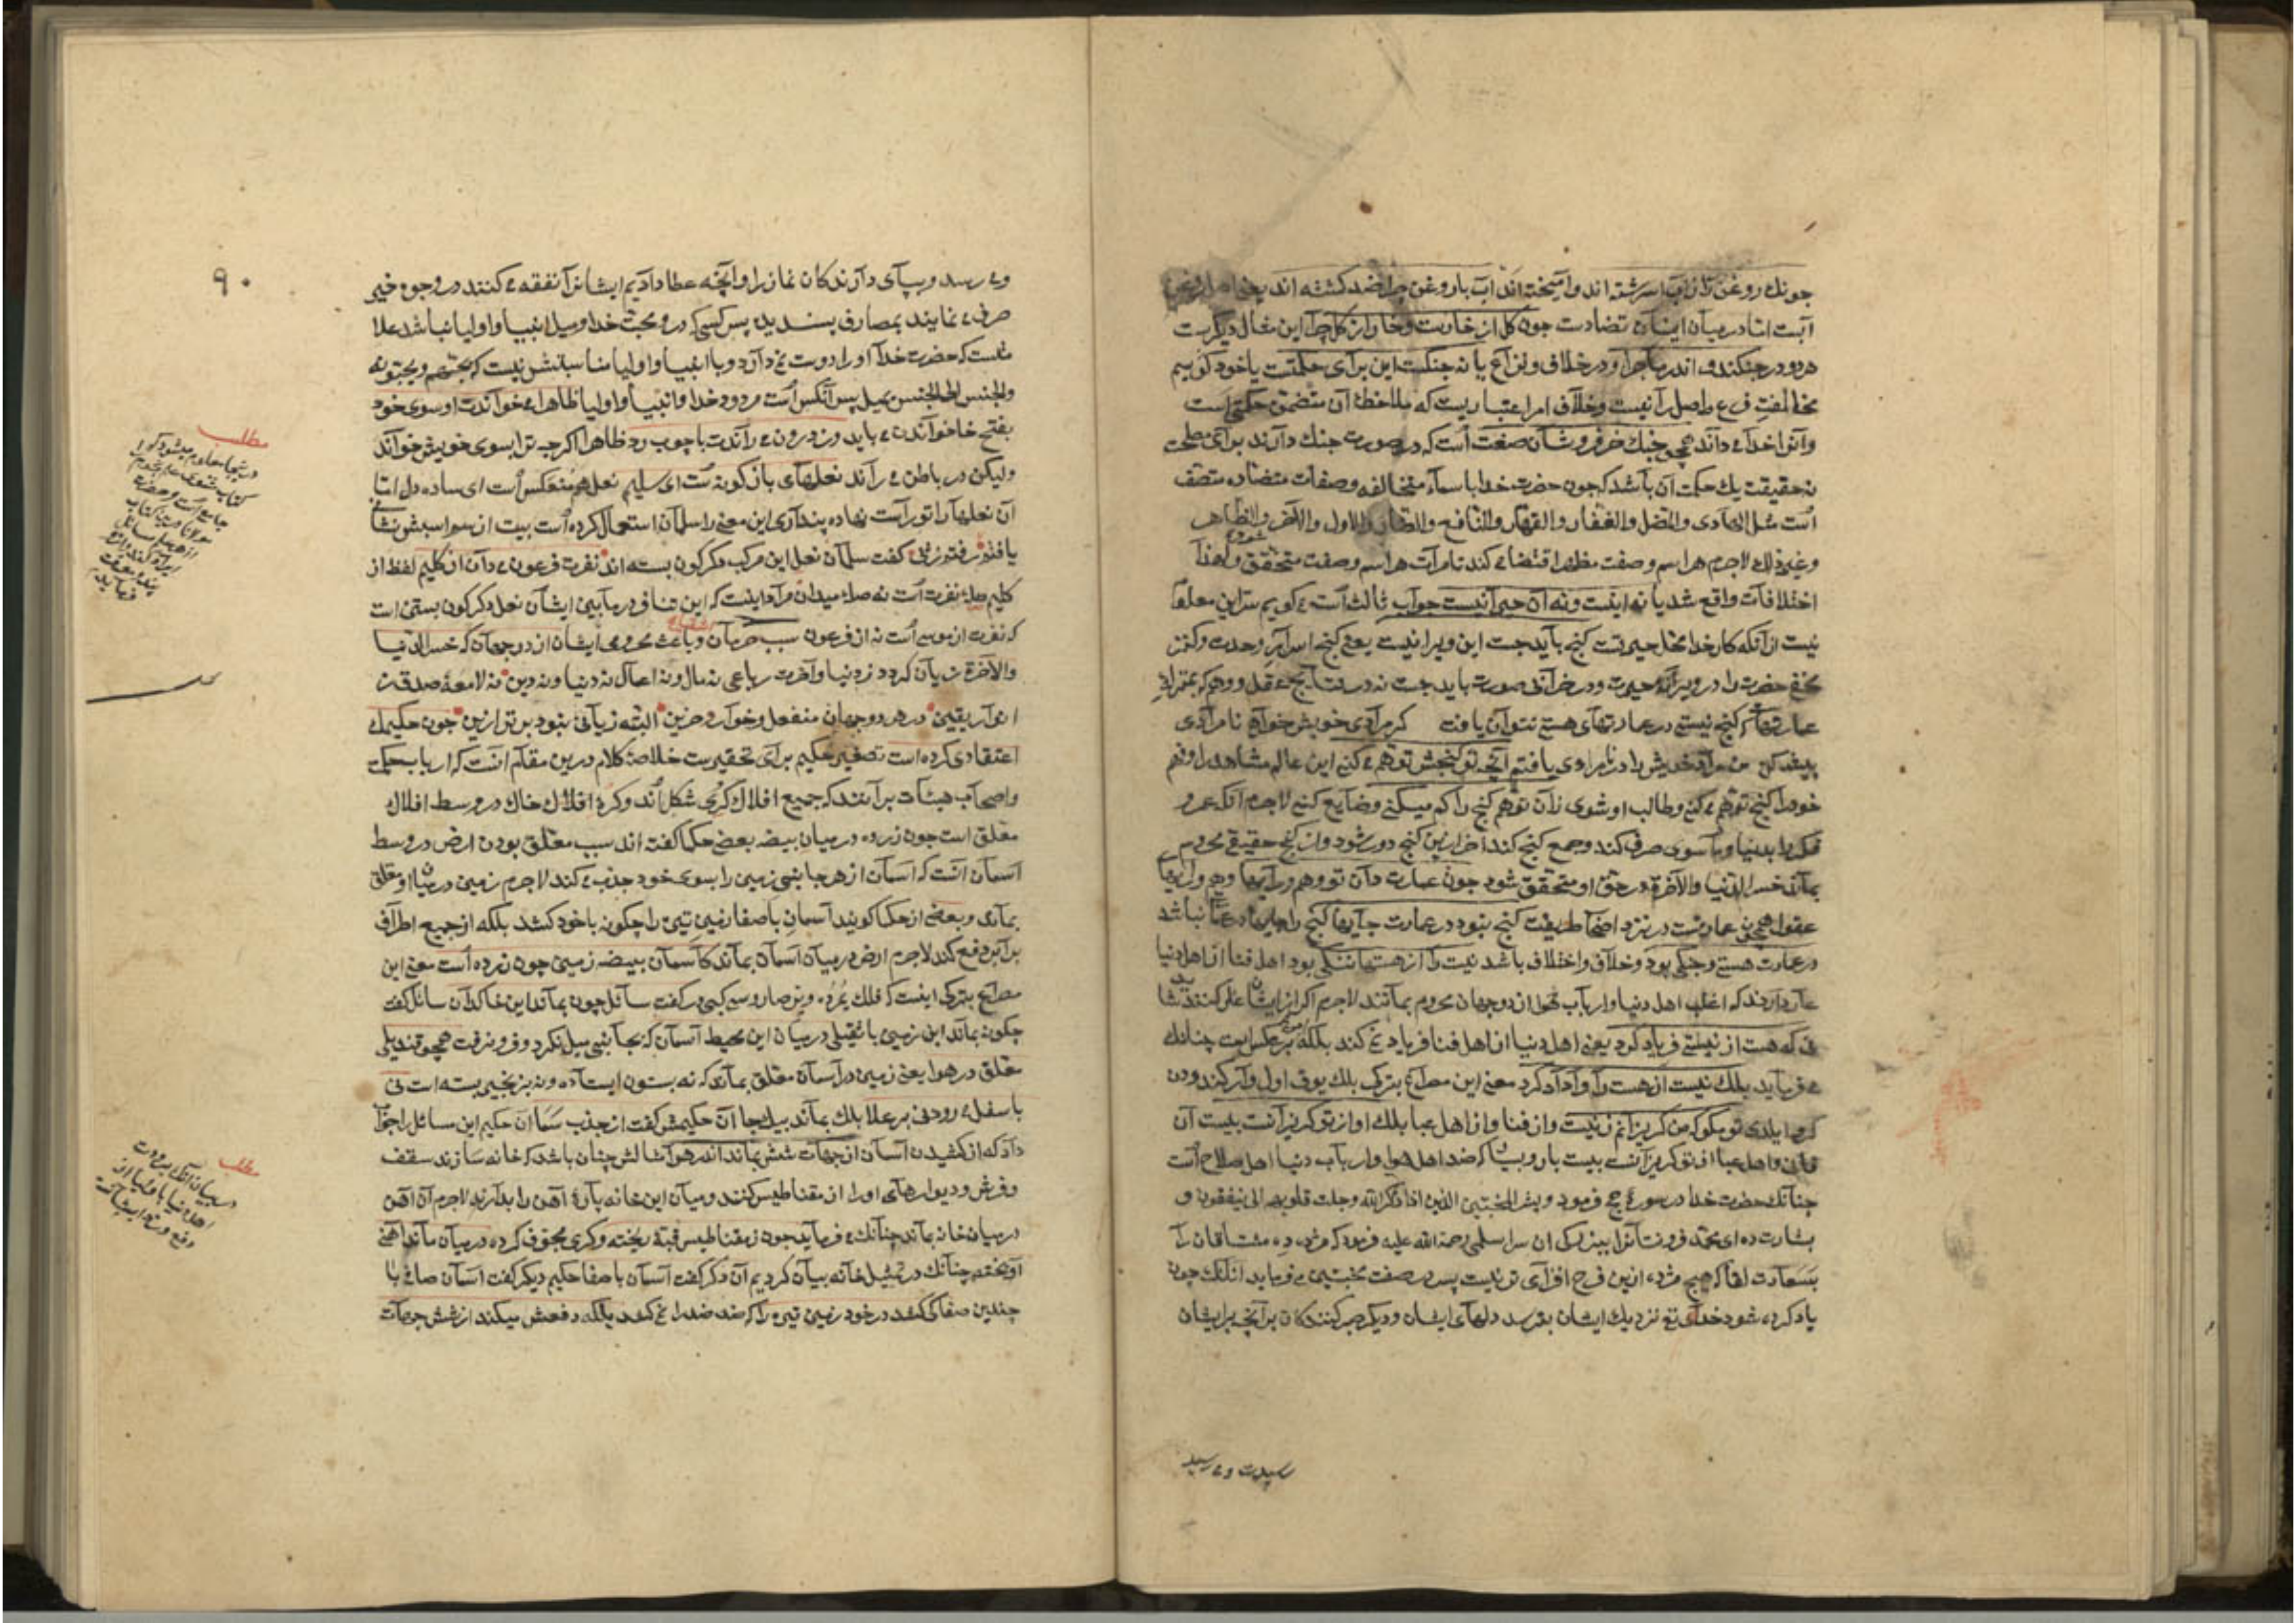 چونك روغن را ز آب اسرشته اند و آمیخته اند آب با روغن چرا ضد کشته اند یعنی اصل روغن
آبست اما در میان ایشان تضادست چون کل از خارست و خار از کل چرا این مثال دیکرست
هر دو در جنکند و اندر ماجرا و در خلاف و نزاع یا نه جنکست این برای حکمتست یا خود کوییم
مخالفت فرع باصل را نیست و خلاف امر اعتباریست که ملاحظهٔ آن متضمن حکمتی است
و آنرا خدا می داند همچو جنك خر فروشان صنعت است که در صورت جنك دارند برای مصلحت
نه حقیقت یك حکمت آن باشد که چون حضرت خدا با سماء متخالفه و صفات متضاده متصف
است مثل الهادی والمضل والغفار والقهار والنافع والضار والاول والآخر والظاهر
وغیر ذلك لاجرم هر اسم و صفت مظهر اقتضا می کند تا مرآت هر اسم و صفت متحقق شود و لهذا
اختلافات واقع شد یا نه اینست و نه آن حیرانیست جواب ثالث است می کویم سر این معلوم
نیست از آنکه کار خدا محل حیرتست کنج باید جست این ویرانیست یعنی کنج اسرار وحدت و کنز
مخفی حضرت را در ویرانهٔ حیرت و در خرابی صورت باید جست نه در عقل و وهم که بمنزلهٔ
عمارتهاست که کنج نیستی در عمارتهای هستی نتوان یافت کر مرادی خویش خواهی نامرادی
پیشه کن من مراد خویش را در نامرادی یافتم آنچه تو کنجش توهم می کنی این عالم مشاهد را وهم
خود را کنج توهم می کنی و طالب او شوی زان توهم کنج را کم میکنی و ضایع کنی لاجرم آنکه عمر و
فکر را بدنیا و ماسوی صرف کند و جمع کنج کند آخر ازین کنج دور شود و از کنج حقیقی محروم
بماند خسر الدنیا والآخرة در حق او متحقق شود چون عمارت دان تو وهم و رایها وهم و رایهای
عقول همچون عمارتست در نزد اصحاب طریقت کنج نبود در عمارت جایها کنج را جایها در عمارت نباشد
در عمارت هستی و جنکی بود و خلاف و اختلاف باشد نیست را از هستها ننکی بود اهل فنا از اهل دنیا
عار دارند که اغلب اهل دنیا و ارباب هوا از دو جهان محروم بمانند لاجرم اکر از ایشان عار کنند شاید
نی که هست از نیستی فریاد کرد یعنی اهل دنیا از اهل فنا فریاد نمی کند بلکه امر بر عکس است چنانك
می فرماید بلك نیست از هست را وا داد کرد معنی این مصراع بترکی بلك یوق اول وارکندودن
کرو ایلدی تو مکو که من کریزانم ز نیست و از فنا و از اهل عبا بلك او از تو کریزانست بیست آن
فانی و اهل عبا از تو کریزانست بیست بار و بیشتر که ضد اهل هوا و ارباب دنیا اهل صلاح است
چنانك حضرت خدا در سورهٔ حج فرمود وبشر المخبتین الذین اذا ذکر الله وجلت قلوبهم الی ینفقون و
بشارت ده ای محمد فروتنانرا سلمی رحمة الله علیه فرمود که مژده ده مشتاقان را
بسعادت لقا که هیچ مژده ازین فرح افزای تر نیست پس در صفت مخبتین می فرماید آنانك چون
یاد کرده شود خدای تع نزدیك ایشان بترسد دلهای ایشان و دیکر صبر کنندکان بر آنچه بر ایشان
رسیدست و می رسد
۹۰
و می رسد و بپای دارندکان نماز را و آنچه عطا دادیم ایشانرا نفقه می کنند در وجوه خیر
صرف می نمایند بمصارف پسندیده پس کسی که در و محبت خدا و میل انبیا و اولیا نباشد علا
متست که حضرت خدا او را دوست نمی دارد و با انبیا و اولیا مناسبتش نیست که یحبهم ویحبونه
والجنس الی الجنس یمیل پس آنکس است مردود خدا و انبیا و اولیا ظاهرا می خواندت او سوی خود
بفتح خا خواندن می باید وز درون می راندت با چوب رد ظاهرا اکرچه ترا بسوی خویش خواند
ولیکن در باطن می راند نعلهای بازکونه ست ای سلیم نعلهٔ منعکس است ای ساده دل اما
آن نعلها را تو راست نهاده پنداری این معنی را سلمان استعمال کرده است بیت از سم اسبش نشانی
یافتم رفتم ز پی کفت سلمان نعل این مرکب دکرکون بسته اند نفرت فرعون می دان از کلیم لفظ از
کلیم صلهٔ نفرت است نه صلهٔ میدان مراد اینست که این تنافر در مابین ایشان نعل دکرکون بستن است
که نفرت از موسی است نه از فرعون سبب حرمان و باعث محرومی ایشان از دو جهان که خسر الدنیا
والآخرة زیان کردد ز دنیا و آخرت رباعی نه مال و نه اعمال نه دنیا و نه دین نه لامعهٔ صدق نه
انوار یقین در هر دو جهان منفعل و خوار و حزین البته زیانی نبود بدتر ازین چون حکیمك
اعتقادی کرده است تصغیر حکیم برای تحقیرست خلاصهٔ کلام درین مقام آنست که ارباب حکمت
و اصحاب هیئات برآنند که جمیع افلاك کری شکل اند و کرهٔ افلاك خاك در وسط افلاك
معلق است چون زرده در میان بیضه بعضی حکما کفته اند سبب معلق بودن ارض در وسط
آسمان آنست که آسمان از هر جانبی زمین را بسوی خود جذب می کند لاجرم زمین در میان او معلق
بماند و بعضی از حکما کویند آسمان باصفا زمین تیره را چکونه با خود کشد بلکه از جمیع اطراف
برابر دفع کند لاجرم ارض در میان آسمان بماند کآسمان بیضه زمین چون زرده است معنی این
مصراع بترکی اینست که فلك یمرده ویر صاروسی کبیدر کفت سائل چون بماند این خاکدان سائل کفت
چکونه بماند این زمین با ثقیلی در میان این محیط آسمان که بجانبی میل نکرد و فرو نرفت همچو قندیلی
معلق در هوا یعنی زمین در آسمان معلق بماند که نه بستون ایستاده و نه بزنجیر بسته است نی
باسفل می رود نی بر علا بلك بماند بیك جا آن حکیمش کفت از جذب سما آن حکیم این مسائل را جواب
داد که از کشیدن آسمان از جهات شش بماند اندر هوا مثالش چنان باشد که خانه سازند سقف
و فرش و دیوارهای او را از مقناطیس کنند و میان این خانه پارهٔ آهن را بدارند لاجرم آن آهن
در میان خانه بماند چنانك می فرماید چون ز مقناطیس قبهٔ ریخته و کری مجوف کرده در میان ماند آهنی
آویخته چنانك در تمثیل خانه بیان کردیم آن دکر کفت آسمان باصفا حکیم دیکر کفت آسمان صافی با
چندین صفا کی کشد در خود زمین تیره را که ضد ضد را نمی کشد بلکه دفعش میکند از شش جهات
مطلب
در اینجا معلوم میشود که
کتاب مثنوی
جامع است و حضرت
مولانا درین کتاب
از هر مسائل
مطلب
در بیان آنکه مردودیت
اهل دنیا با اولیا از